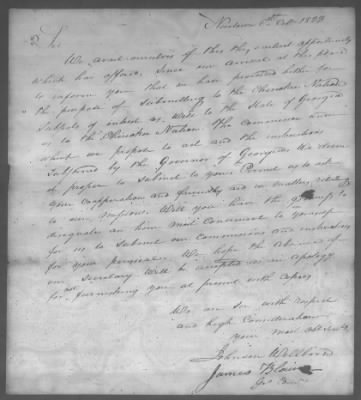 Newtown 6th Oct 1823
Sir
We avail ourselves of this the earliest opportunity
which has offered, since our arrival at this place
to inform you that we have proceeded hither for
the purpose of submitting to the Cherokee Nation
subjects of interest as well to the State of Georgia
as to the Cherokee Nation. The commission under
which we propose to act and the instructions
furnished by the Governor of Georgia we deem
it proper to submit to your Perusal so as to ask
your cooperation and friendly aid in matters relating
to our mission. Will you have the goodness to
designate an hour most convenient to yourself
for us to submit our commissions and instructions
for your perusal. We hope the absence of
our Secretary will be accepted as an apology
for not furnishing you at present with copies
We are Sir with respect
and high Consideration
your most obt servts
Johnson Wellborn
James Blair